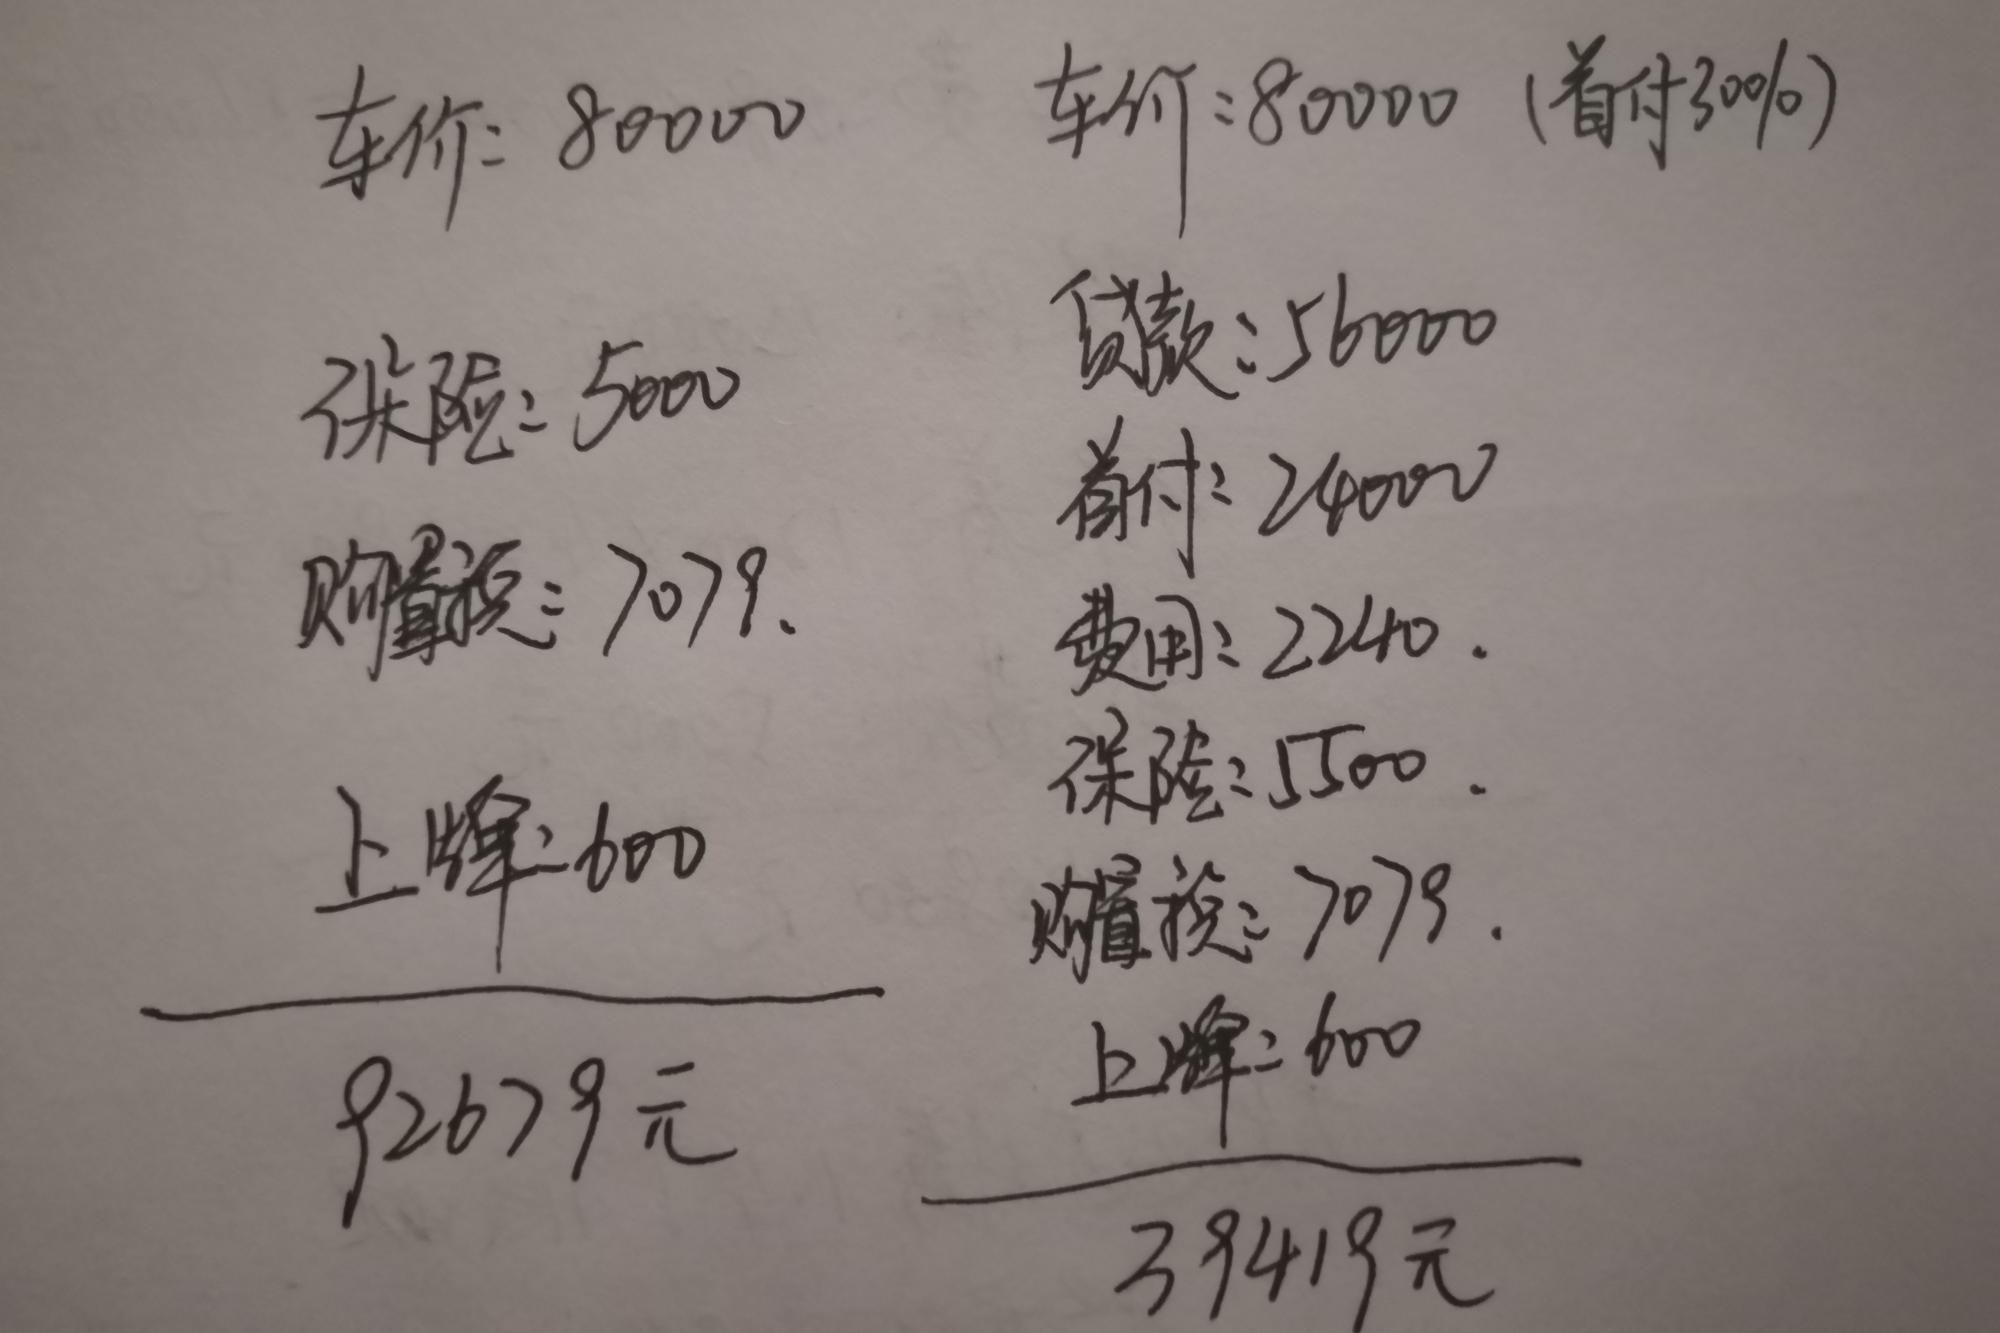 车价: 80000
保险: 5000
购置税: 7079.
上牌: 600
92679元
车价:80000 (首付30%)
贷款:56000
首付:24000
费用:2240.
保险:5500.
购置税:7079.
上牌:600
39419元